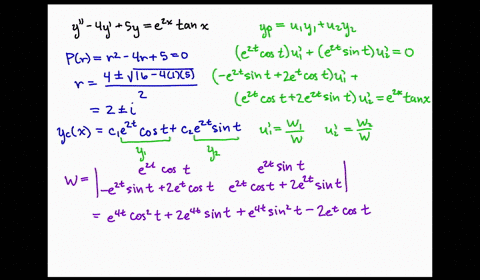 y'' - 4y' + 5y = e^{2x} tan x
P(r) = r² - 4r + 5 = 0
r = \frac{4 ± \sqrt{16 - 4(1)(5)}}{2}
= 2 ± i
y_c(x) = c_1 e^{2t} cos t + c_2 e^{2t} sin t
y_1 y_2
y_p = u_1 y_1 + u_2 y_2
(e^{2t} cos t) u_1' + (e^{2t} sin t) u_2' = 0
(-e^{2t} sin t + 2e^t cos t) u_1' +
(e^{2t} cos t + 2e^{2t} sin t) u_2' = e^{2x} tan x
u_1' = \frac{W_1}{W} u_2' = \frac{W_2}{W}
W = | e^{2t} cos t e^{2t} sin t |
| -e^{2t} sin t + 2e^t cos t e^{2t} cos t + 2e^{2t} sin t |
= e^{4t} cos² t + 2e^{4t} sin t + e^{4t} sin² t - 2e^t cos t